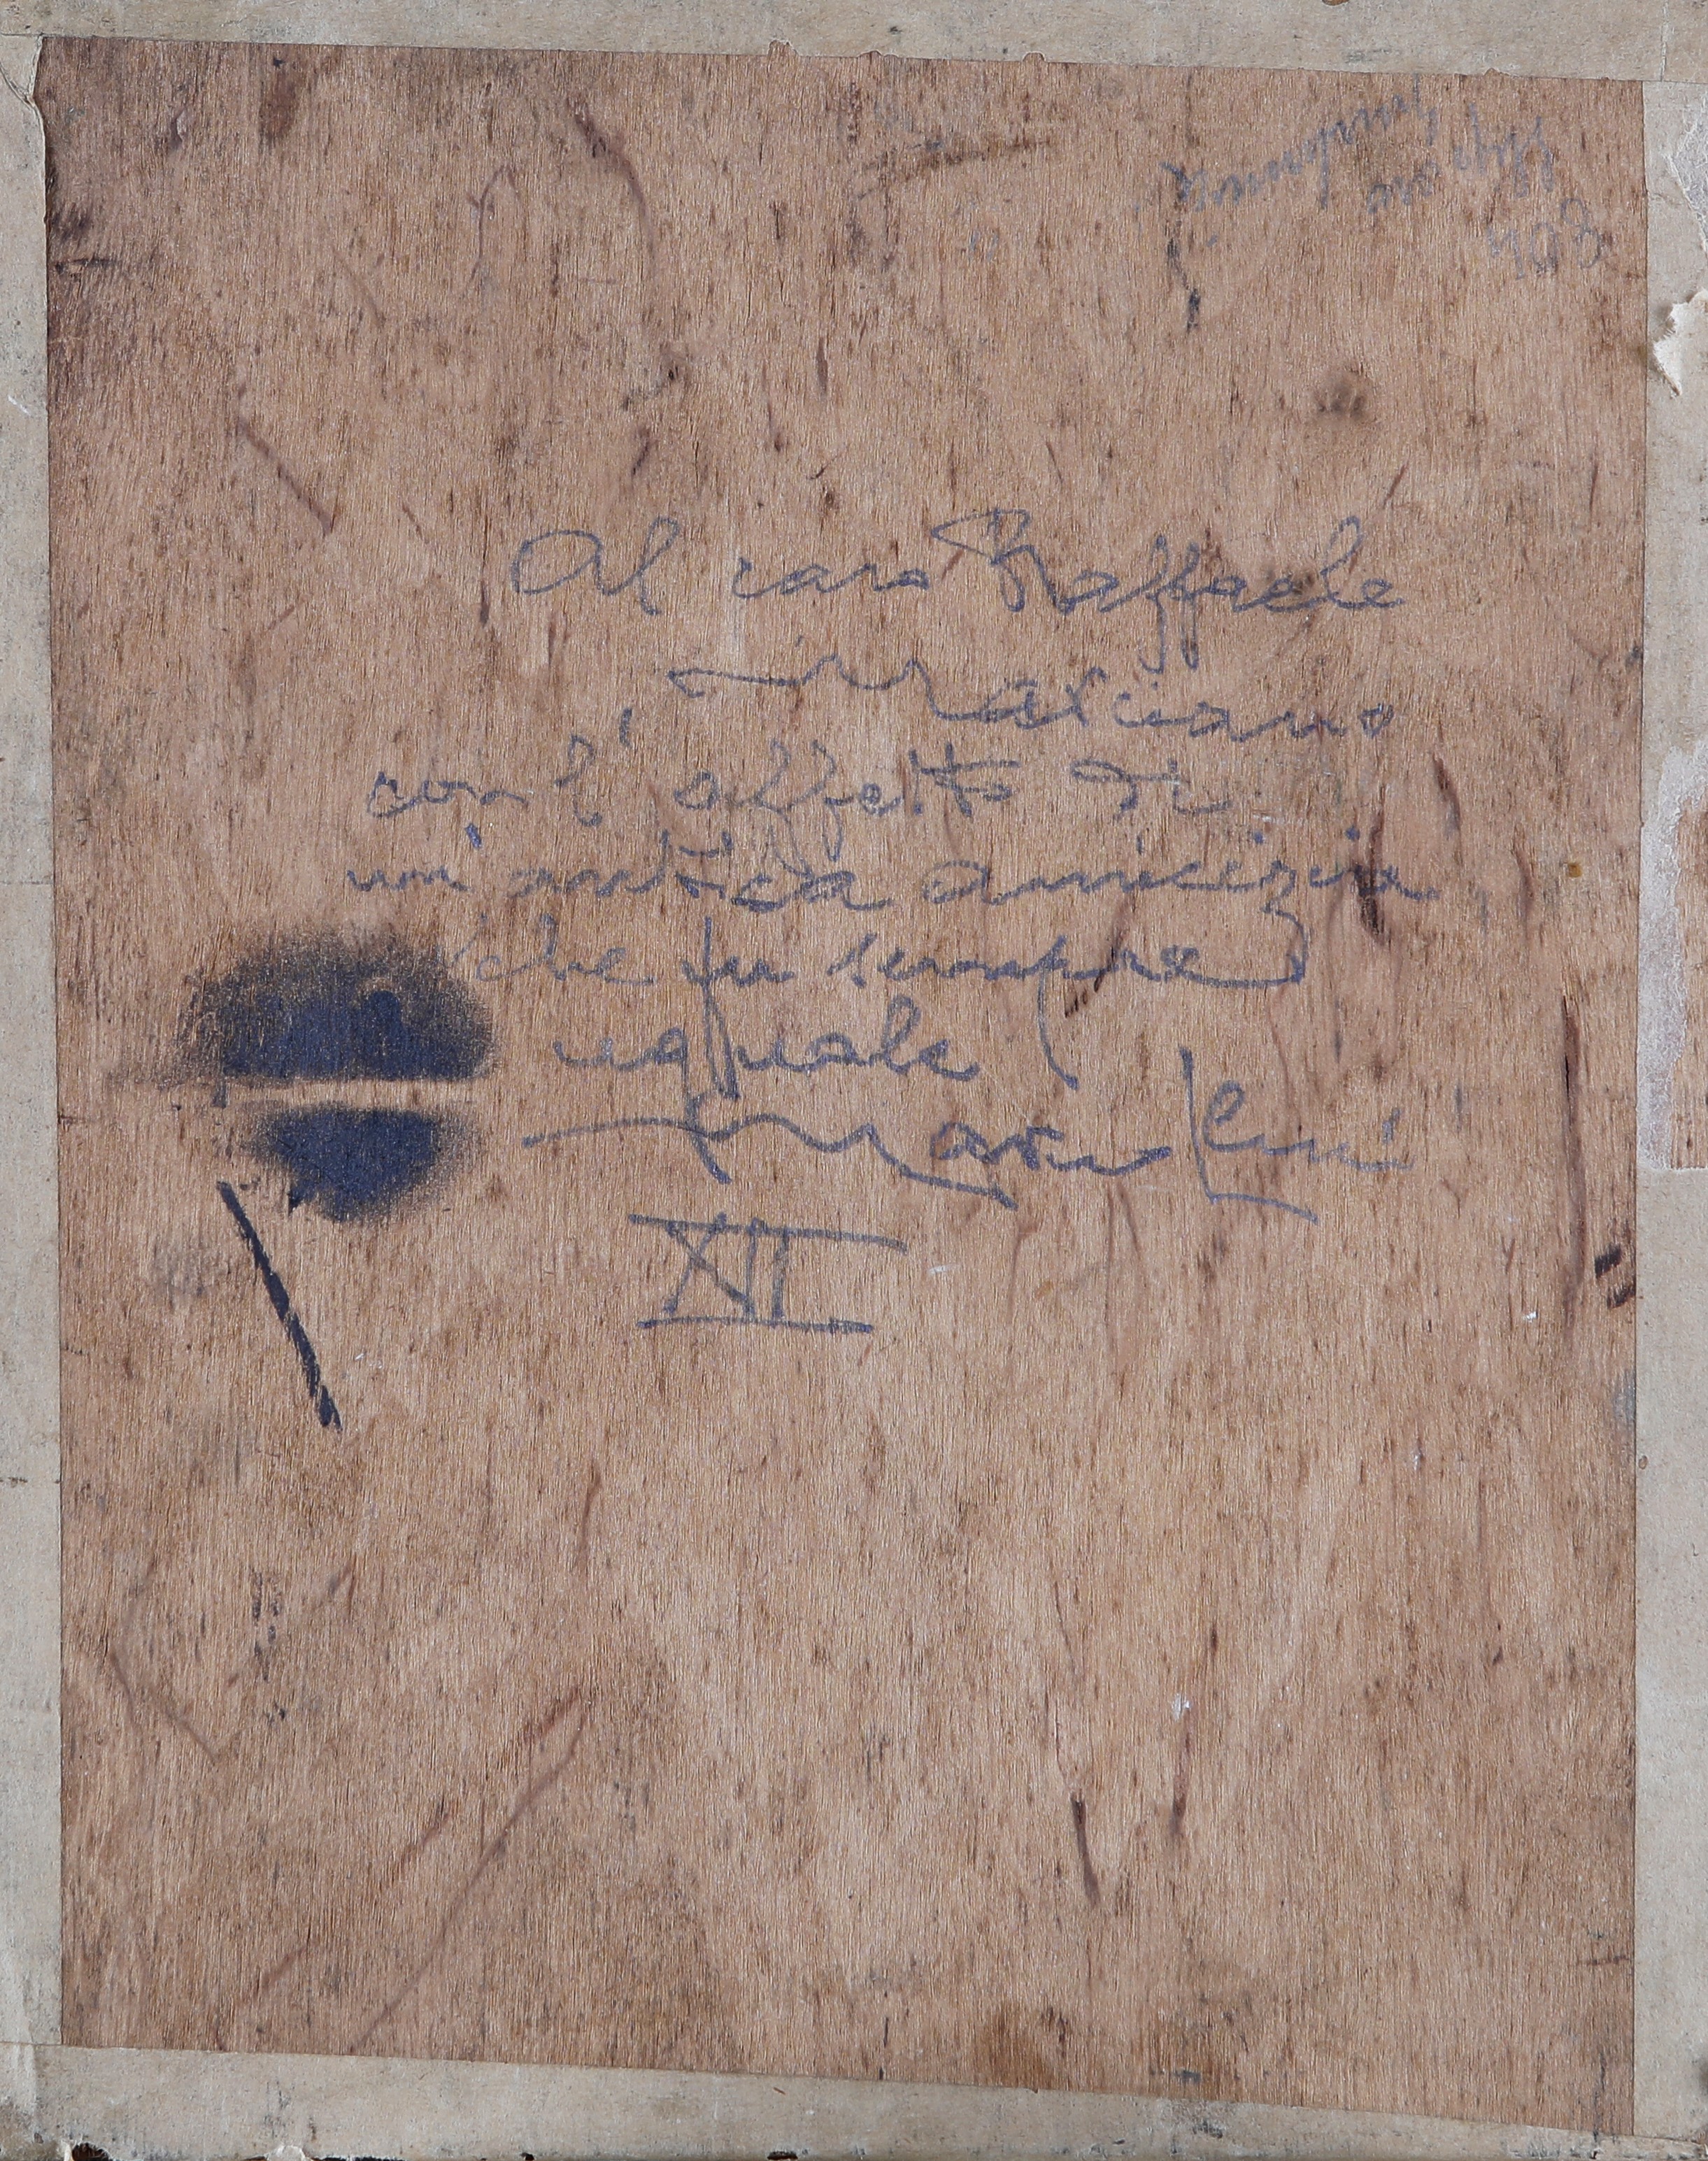 Al caro Raffaele
Marciano
con l'affetto di
un'antica amicizia
che fu sempre
uguale
XII